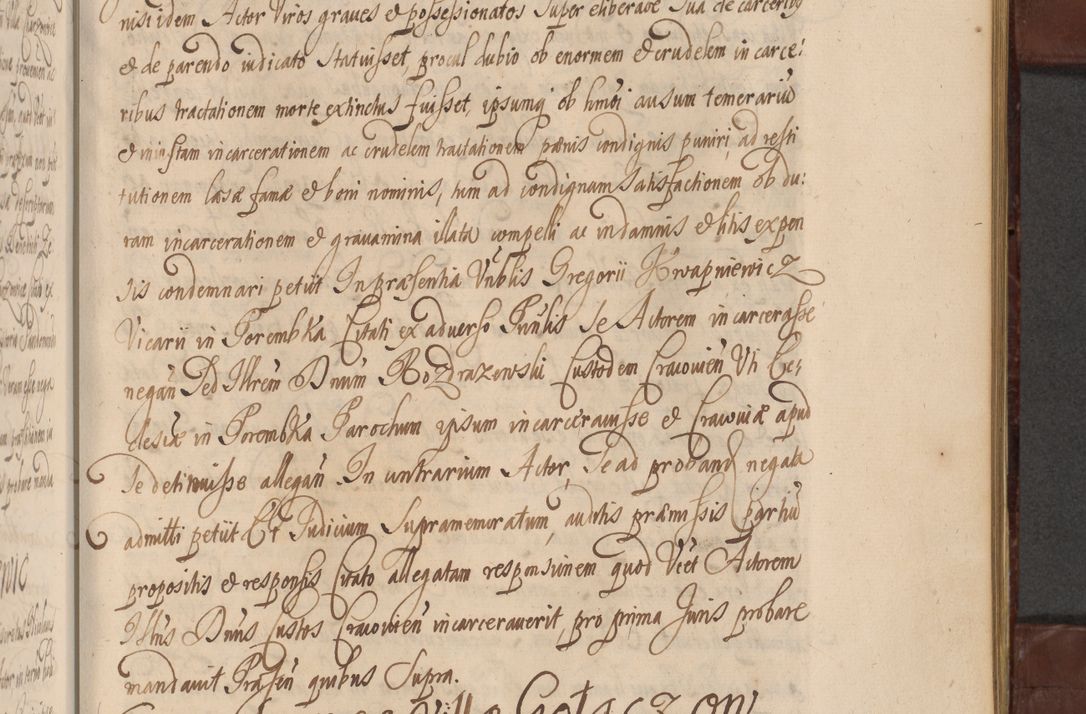 nisi idem Actor Viros graves et possessionatos super eliberaōe sua de carceribꝰ
et de parendo iudicato statuisset, procul dubio ob enormem et crudelem in carce:
ribus tractationem morte extinctus fuisset, ipsumq̃ ob hmõi ausum temerariũ
et iniustam incarcerationem ac crudelem tractationem pænis condignis puniri, ad resti
tutionem læsæ famæ et boni nominis, tum ad condignam satisfactionem ob du:
ram incarcerationem et gravamina illata compelli ac in damnis et litis expen
sis condemnari petiit In præsentia Vñblis Gregorii Krwapniewicz
Vicarii in Porembka Citati ex adverso Pñtis se Actorem incarcerasse
negañ Sed Illrem Dnum Rozdrazewski Custodem Cracovieñ Uti Ec:
clesiæ in Porembka Parochum ipsum incarceravisse et Cracoviæ apud
se detinuisse allegañ In contrarium Actor, se ad proband negata
admitti petiit Et Judicium supramemoratum, auditis præmissis partiũ
propositis et responsis Citato allegatam responsionem quod Vict Actorem
Illris Dnus Custos Cracovieñ incarceraverit, pro prima Juris probare
mandavit Præseñ quibus Supra.